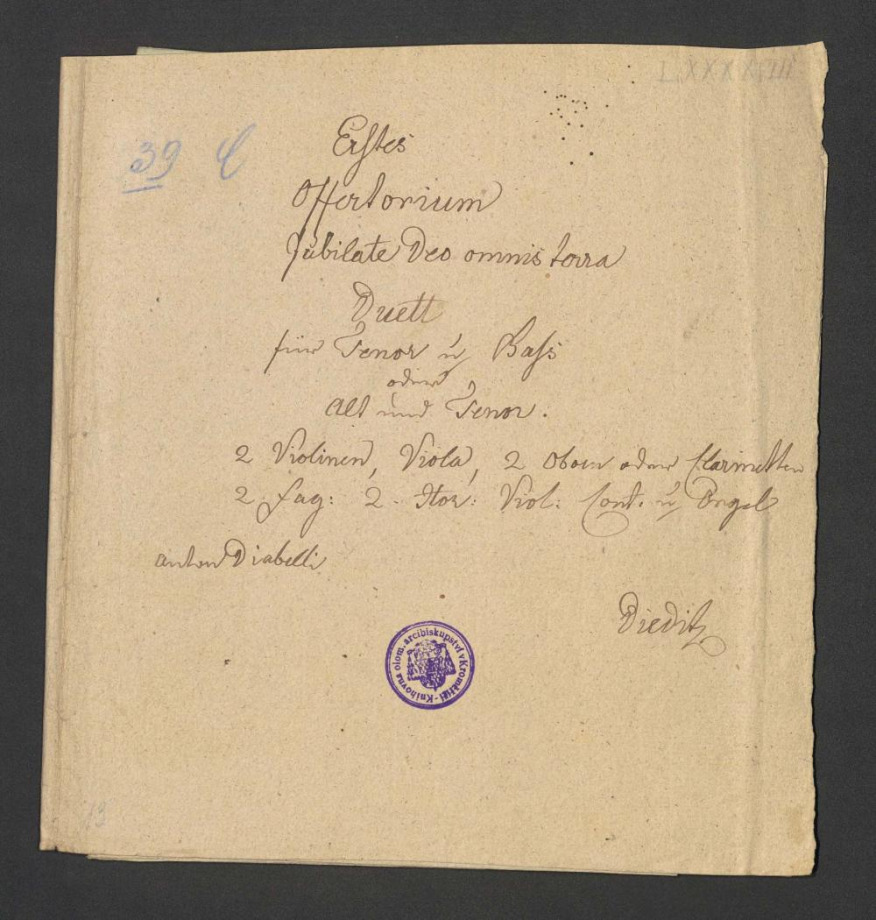 LXXXXVIII
39 C
Erstes
Offertorium
Jubilate Deo omnis terra
Duett
für Tenor u Bass
oder
Alt und Tenor.
2 Violinen, Viola, 2 Oboen oder Clarinetten
2 Fag: 2 Hor: Viol: Cont. u Orgel
Anton Diabelli
Dieditz
Knihovna olom. arcibiskupství v Kroměříži
13